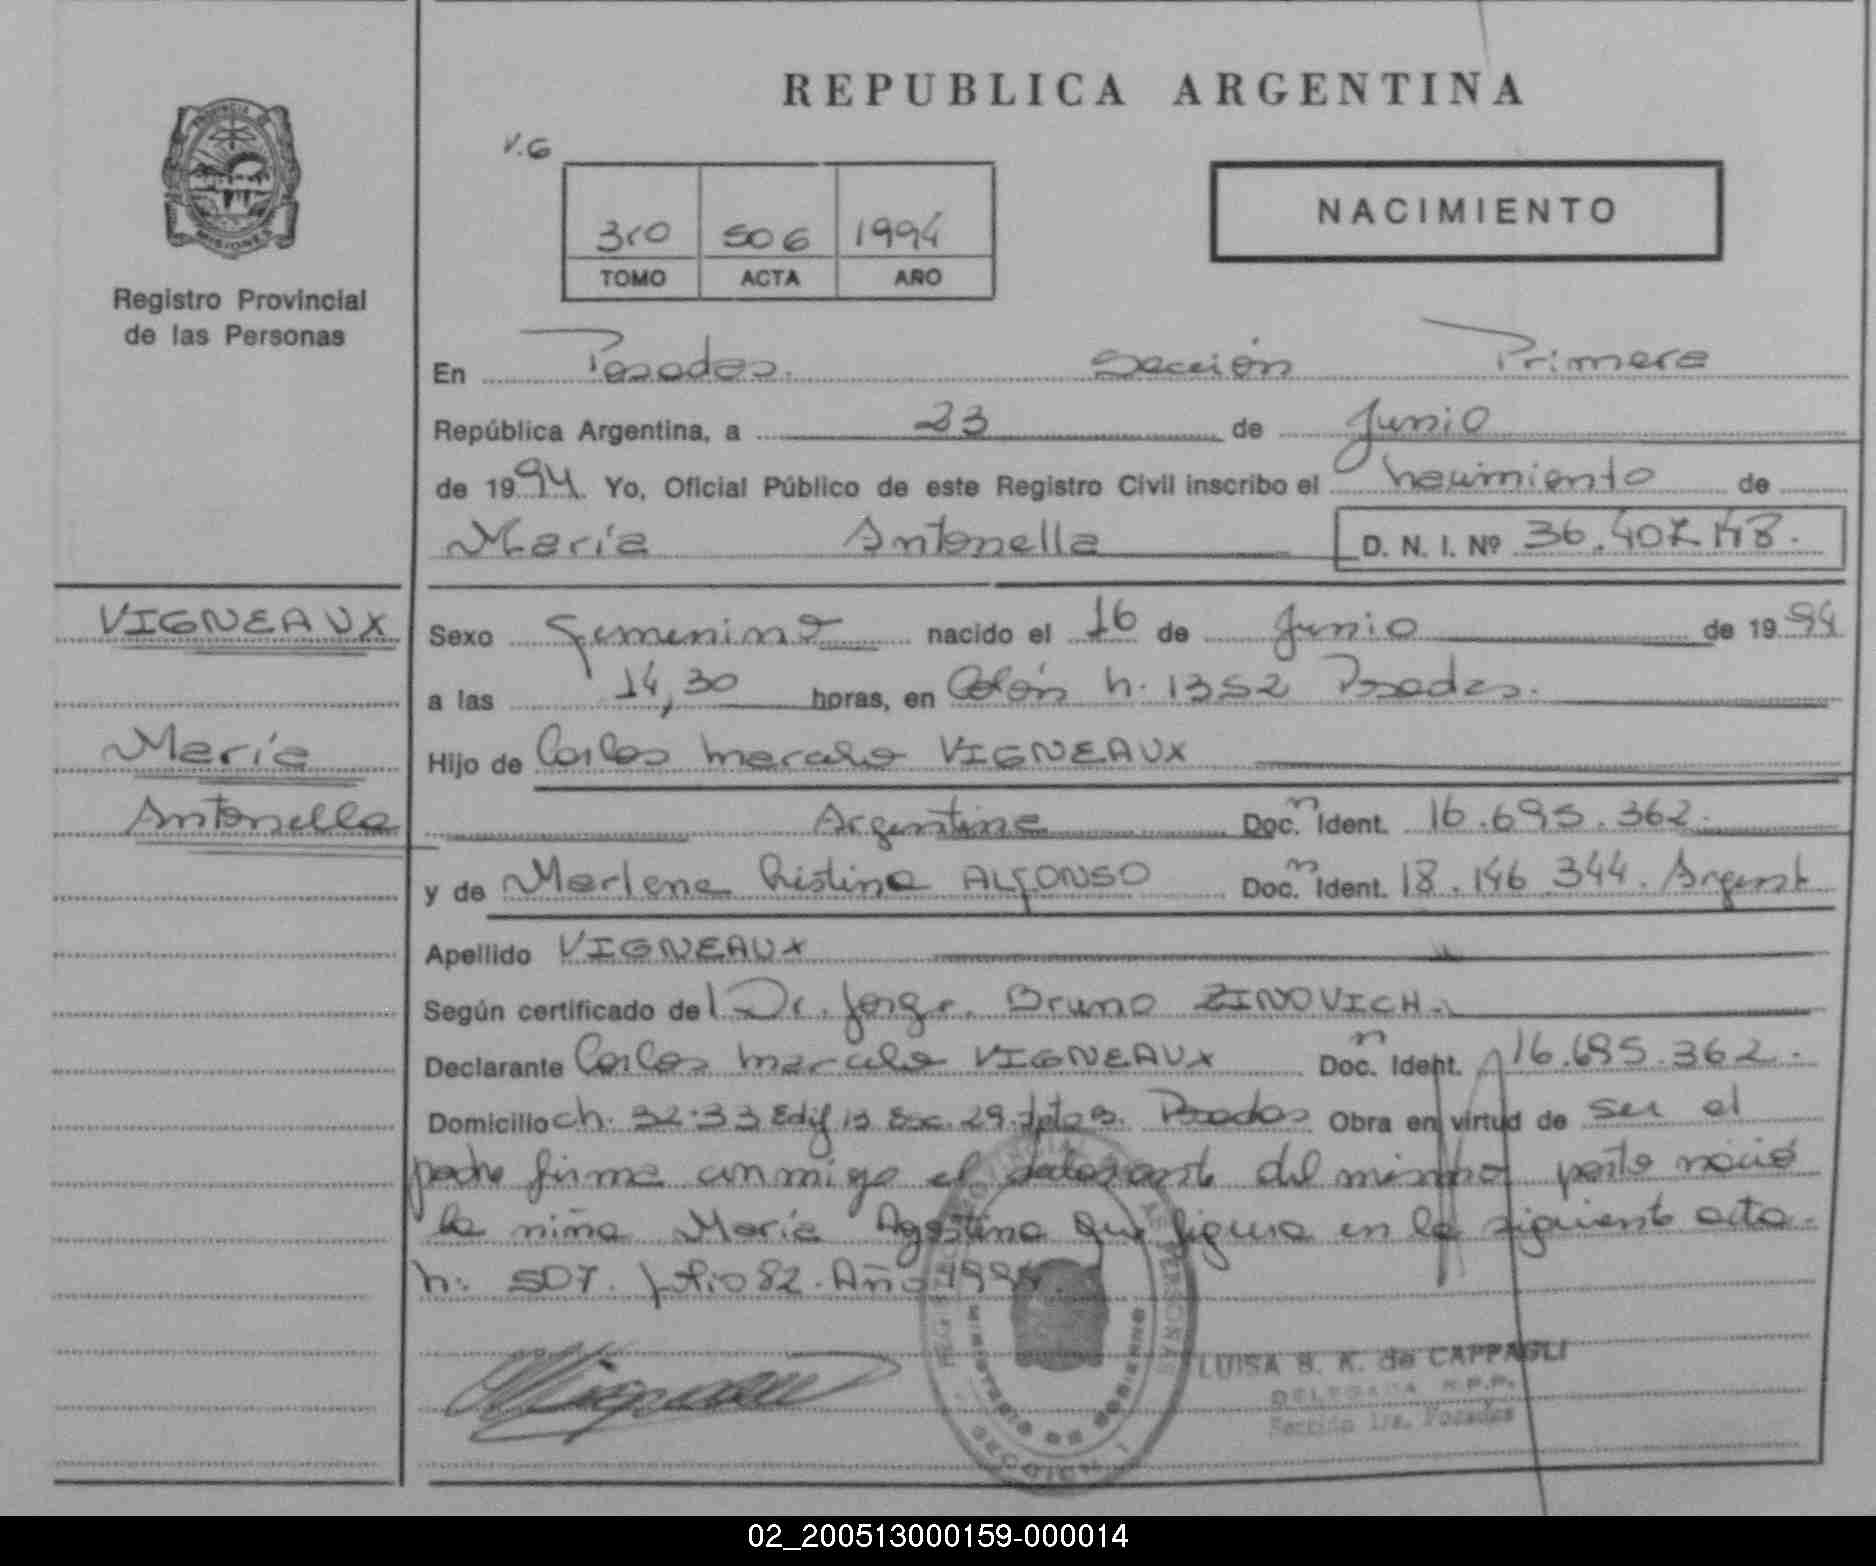 REPUBLICA ARGENTINA
PROVINCIA DE
MISIONES
Registro Provincial
de las Personas
V.G
3ro 506 1994
TOMO ACTA AÑO
NACIMIENTO
En Posadas. Sección Primera
República Argentina, a 23 de Junio
de 1994. Yo, Oficial Público de este Registro Civil inscribo el nacimiento de
María Antonella D. N. I. Nº 36.407.
VIGNEAUX
María
Antonella
Sexo Femenino nacido el 16 de Junio de 1994
a las 14,30 horas, en Colón n. 1352 Posadas.
Hijo de Carlos Marcelo VIGNEAUX
Argentina Doc. n Ident. 16.695.362.
y de Marlene Cristina ALFONSO Doc. n Ident. 18.146.344. Argent
Apellido VIGNEAUX
Según certificado del Dr. Jorge. Bruno ZINOVICH.
Declarante Carlos Marcelo VIGNEAUX Doc. n Ident. 16.695.362.
Domicilio Ch. 32-33 Edif 13 Esc. 29. Dpto B. Posadas Obra en virtud de ser el
padre firma conmigo el declarante del mismo parto nació
la niña María Agostina que figura en la siguiente acta.
n: 507. folio 82. Año 1994
REGISTRO PROVINCIAL DE LAS PERSONAS
MINISTERIO DE GOBIERNO
SECCION 1
LUISA B. K. de CAPPAGLI
DELEGADA R.P.P.
Sección 1ra. Posadas
02_200513000159-000014